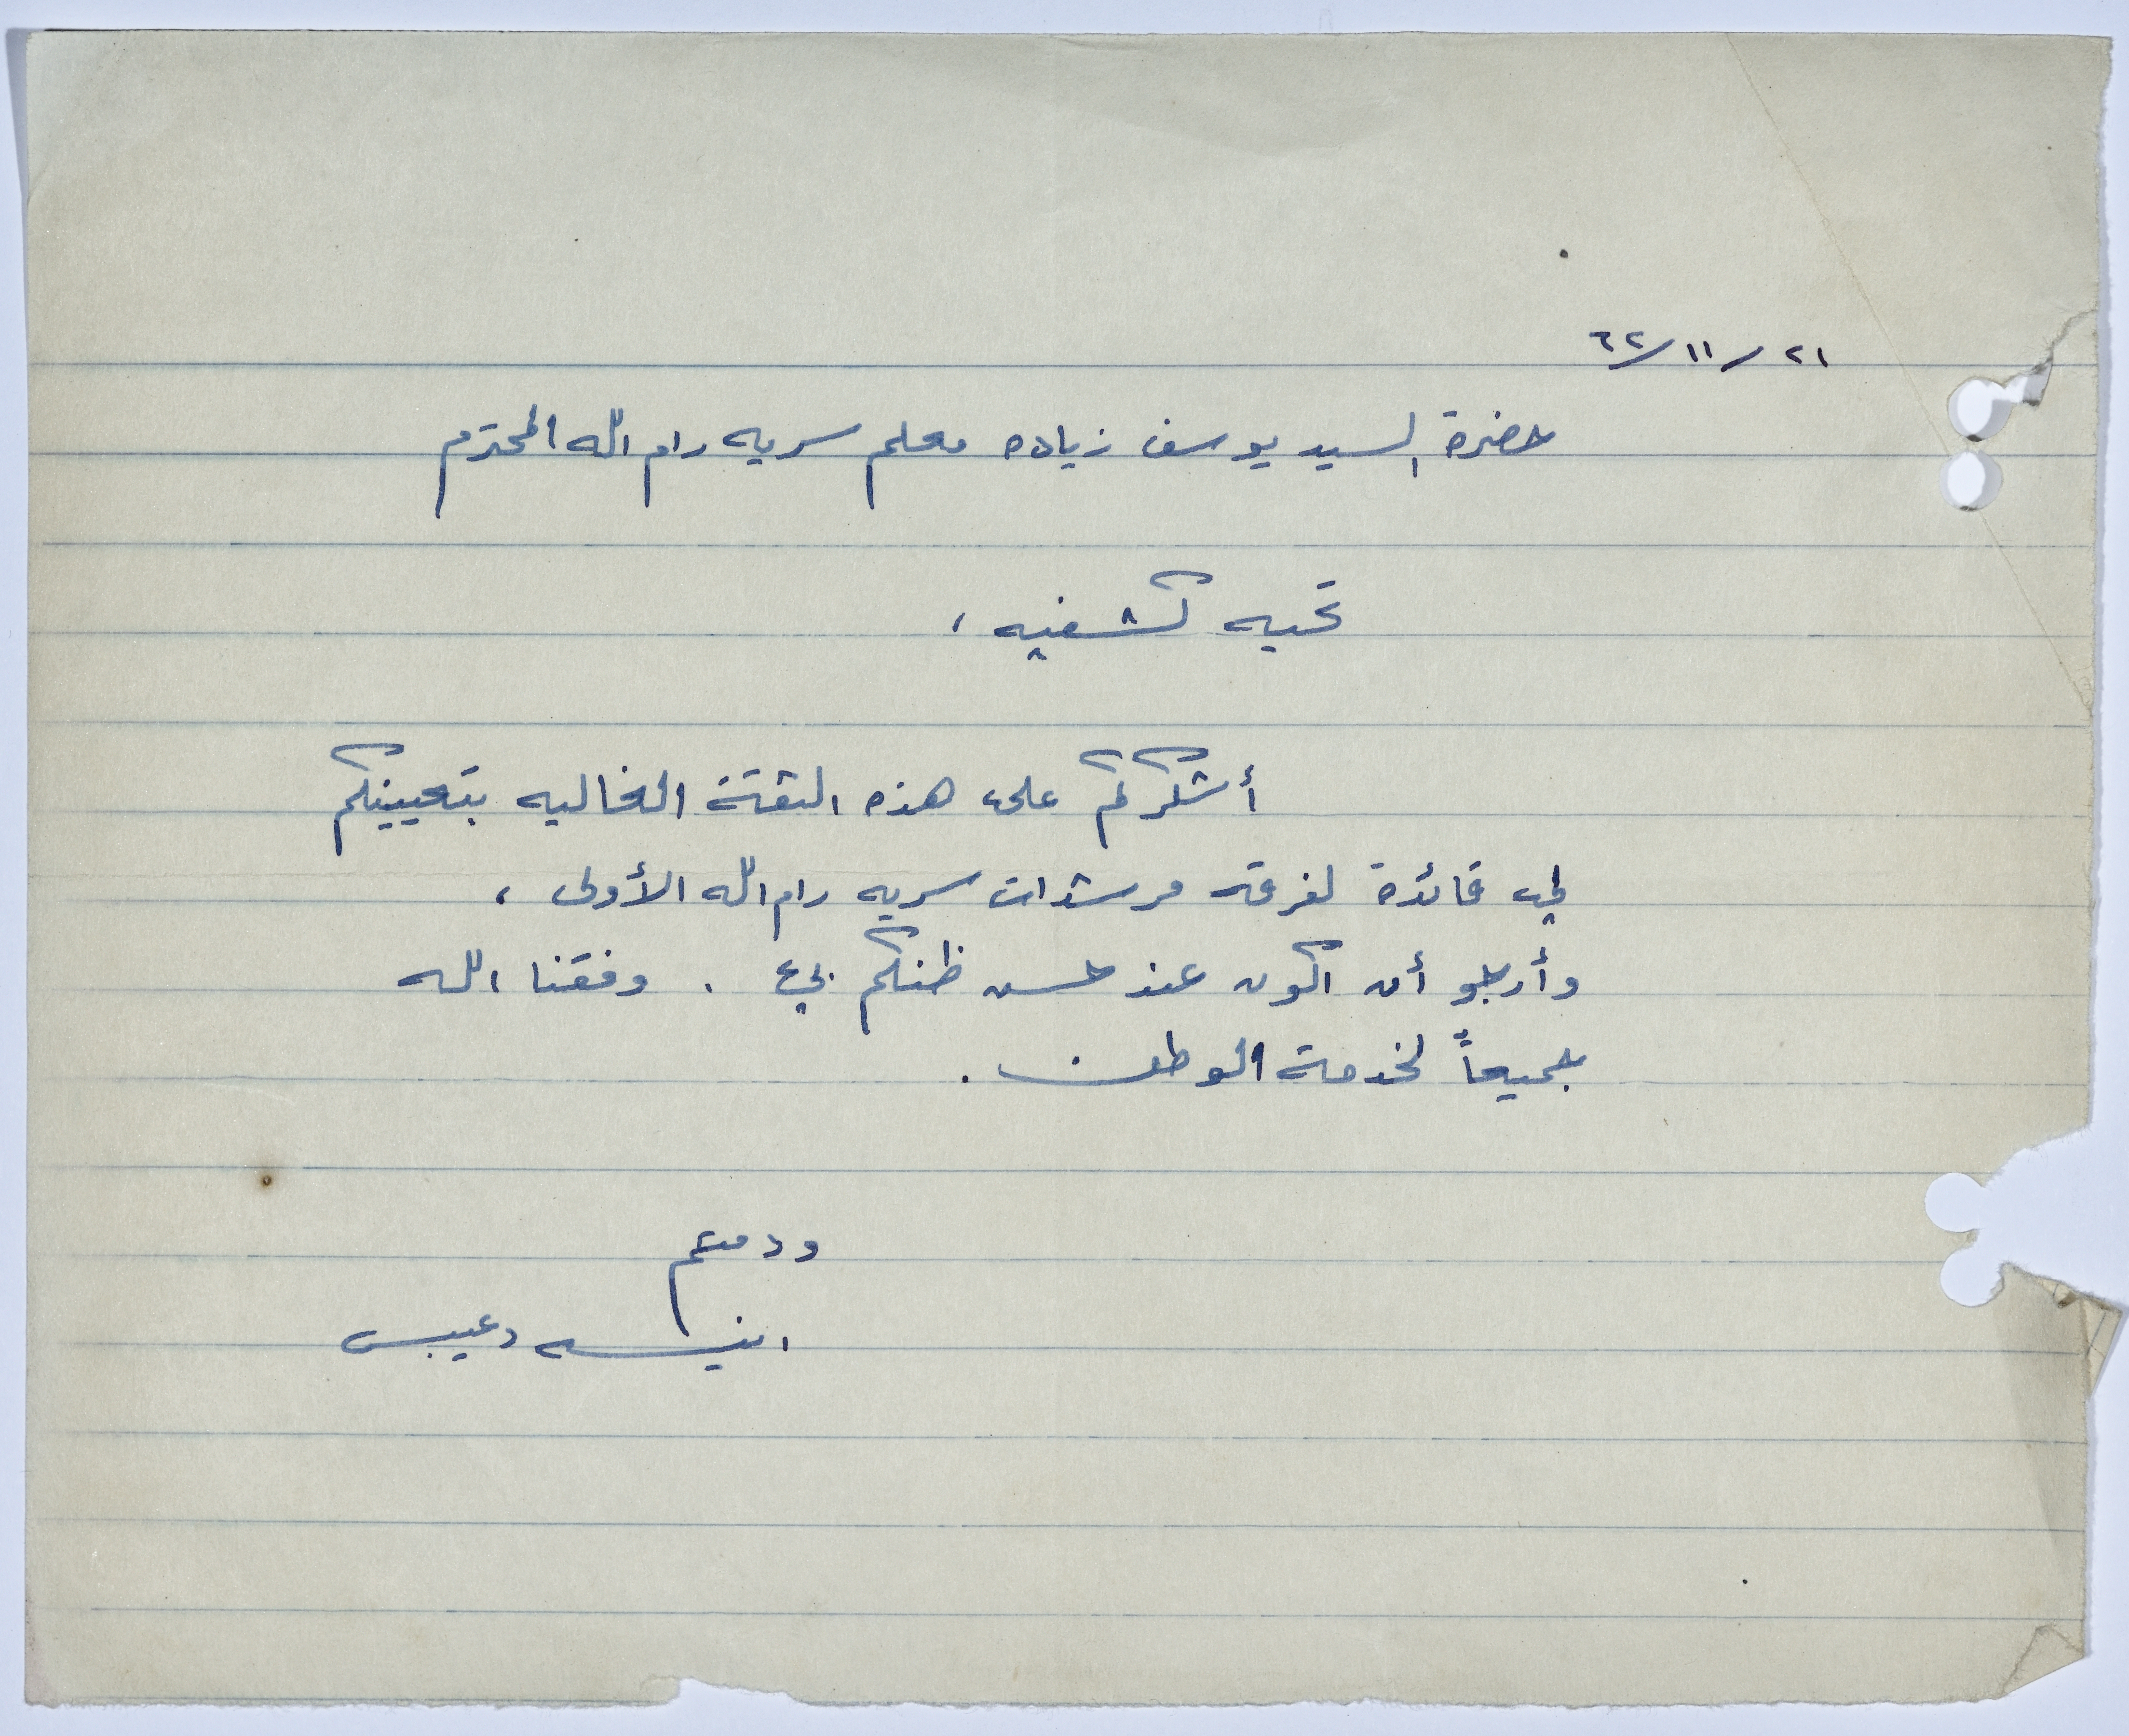 ٢١/١١/٦٢
حضرة السيد يوسف زياده معلم سريه رام الله المحترم
تحيه كشفيه ،
أشكركم على هذه الثقة الغاليه بتعيينكم
لي قائدة لفرقه مرشدات سريه رام الله الأولى ،
وأرجو أن اكون عند حسن ظنكم بي . وفقنا الله
جميعاً لخدمة الوطن .
ودمتم
انيسه دعيبس